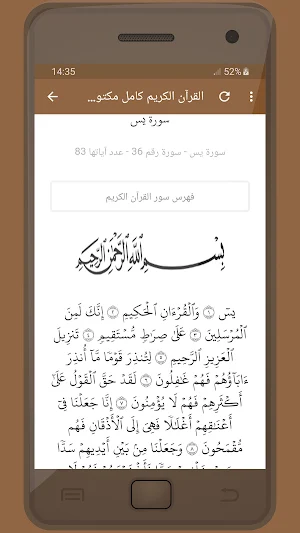 14:35 52%
القرآن الكريم كامل مكتو...
سورة يس
سورة يس - سورة رقم 36 - عدد آياتها 83
فهرس سور القرآن الكريم
بِسْمِ اللَّهِ الرَّحْمَٰنِ الرَّحِيمِ
يسٓ ۝١ وَٱلْقُرْءَانِ ٱلْحَكِيمِ ۝٢ إِنَّكَ لَمِنَ
ٱلْمُرْسَلِينَ ۝٣ عَلَىٰ صِرَٰطٍ مُّسْتَقِيمٍ ۝٤ تَنزِيلَ
ٱلْعَزِيزِ ٱلرَّحِيمِ ۝٥ لِتُنذِرَ قَوْمًا مَّآ أُنذِرَ
ءَابَآؤُهُمْ فَهُمْ غَٰفِلُونَ ۝٦ لَقَدْ حَقَّ ٱلْقَوْلُ عَلَىٰٓ
أَكْثَرِهِمْ فَهُمْ لَا يُؤْمِنُونَ ۝٧ إِنَّا جَعَلْنَا فِىٓ
أَعْنَٰقِهِمْ أَغْلَٰلًا فَهِىَ إِلَى ٱلْأَذْقَانِ فَهُم
مُّقْمَحُونَ ۝٨ وَجَعَلْنَا مِنۢ بَيْنِ أَيْدِيهِمْ سَدًّا